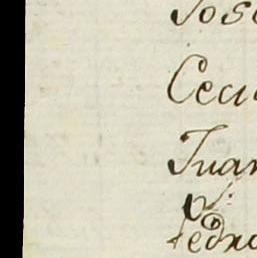 Jose
Ceci
Juan
Pedro